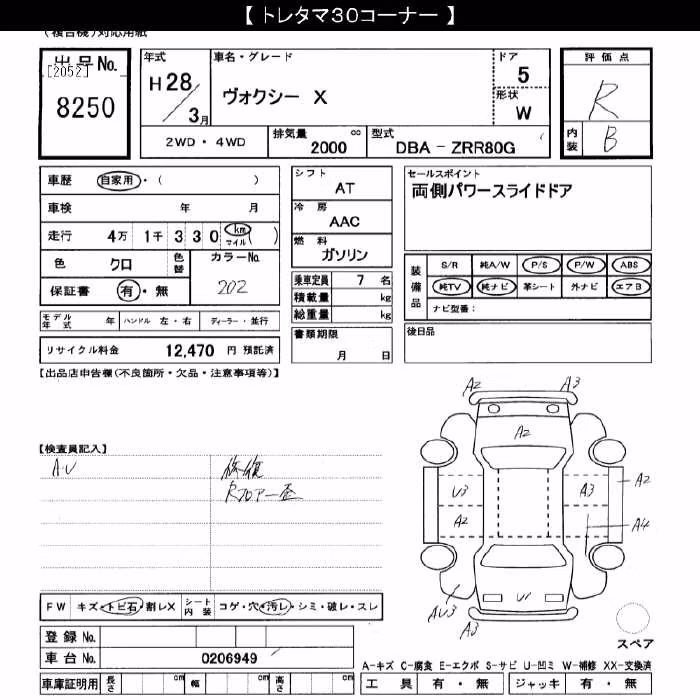 【 トレタマ30コーナー 】
(複合機)対応用紙
出品No.
[2052]
8250
年式
H28/3月
車名・グレード
ヴォクシー X
ドア
5
形状
W
評価点
R
内装
B
2WD・4WD
排気量 cc
2000
型式
DBA - ZRR80G
車歴 自家用・( )
車検 年 月
走行 4万 1千 3 3 0 km マイル ( )
色 クロ 色替 カラーNo. 202
保証書 有・無
モデル年式 年 ハンドル 左・右 ディーラー・並行
リサイクル料金 12,470 円 預託済
シフト
AT
冷房
AAC
燃料
ガソリン
乗車定員 7 名
積載量 kg
総重量 kg
書類期限
月 日
セールスポイント
両側パワースライドドア
装備品
S/R 純A/W P/S P/W ABS
純TV 純ナビ 革シート 外ナビ エアB
ナビ型番:
後日品
【出品店申告欄(不良箇所・欠品・注意事項等)】
【検査員記入】
A・U
修復
Rフロアー歪
A2 A3
A2
U3 A3 A2
A2 A4
AU3 U1
A3
スペア
FW キズ・トビ石・割レX シート内装 コゲ・穴・汚レ・シミ・破レ・スレ
登録No.
車台No. 0206949
車庫証明用 長さ cm 幅 cm 高さ cm
A-キズ C-腐食 E-エクボ S-サビ U-凹ミ W-補修 XX-交換済
工具 有・無 ジャッキ 有・無